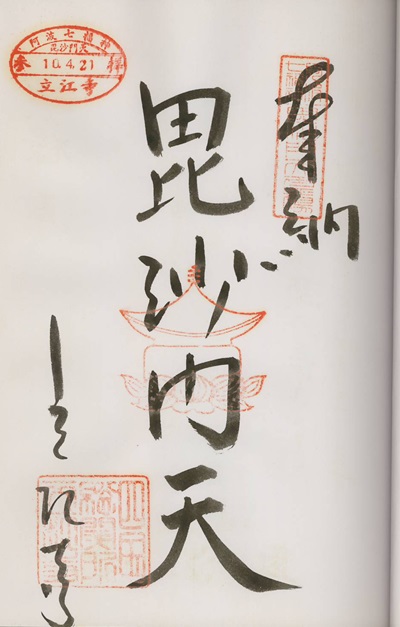 奉納
毘沙門天
立江寺
阿波七福神
毘沙門天
参拝
10.4.21
立江寺